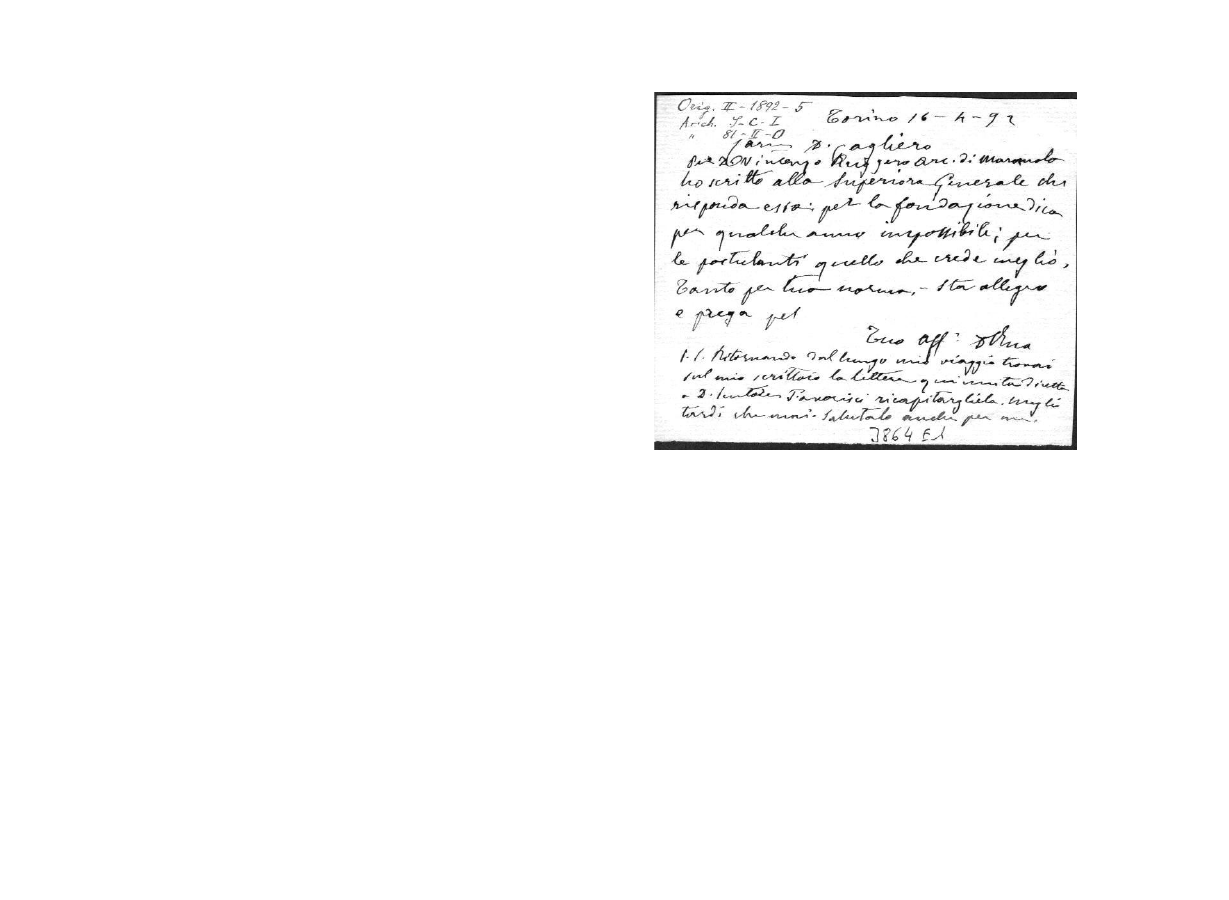 Orig. II - 1892 - 5
Arch. S-C-I
" 81-II-O
Torino 16-4-92
Car.mo D. Cagliero
Per D. Vincenzo Ruggero Arc. di
ho scritto alla Superiora Generale che
risponda essa; per la fondazione dica
per qualche anno impossibile; per
le postulanti quello che crede meglio.
Tanto per tua norma. - Sta allegro
e prega pel
Tuo aff.º D Rua
P.S. Ritornando dal lungo mio viaggio trovai
sul mio scrittoio la lettera qui unita diretta
a D. ricapitargliela. Meglio
tardi che mai. Salutalo anche per me.
3864 E1